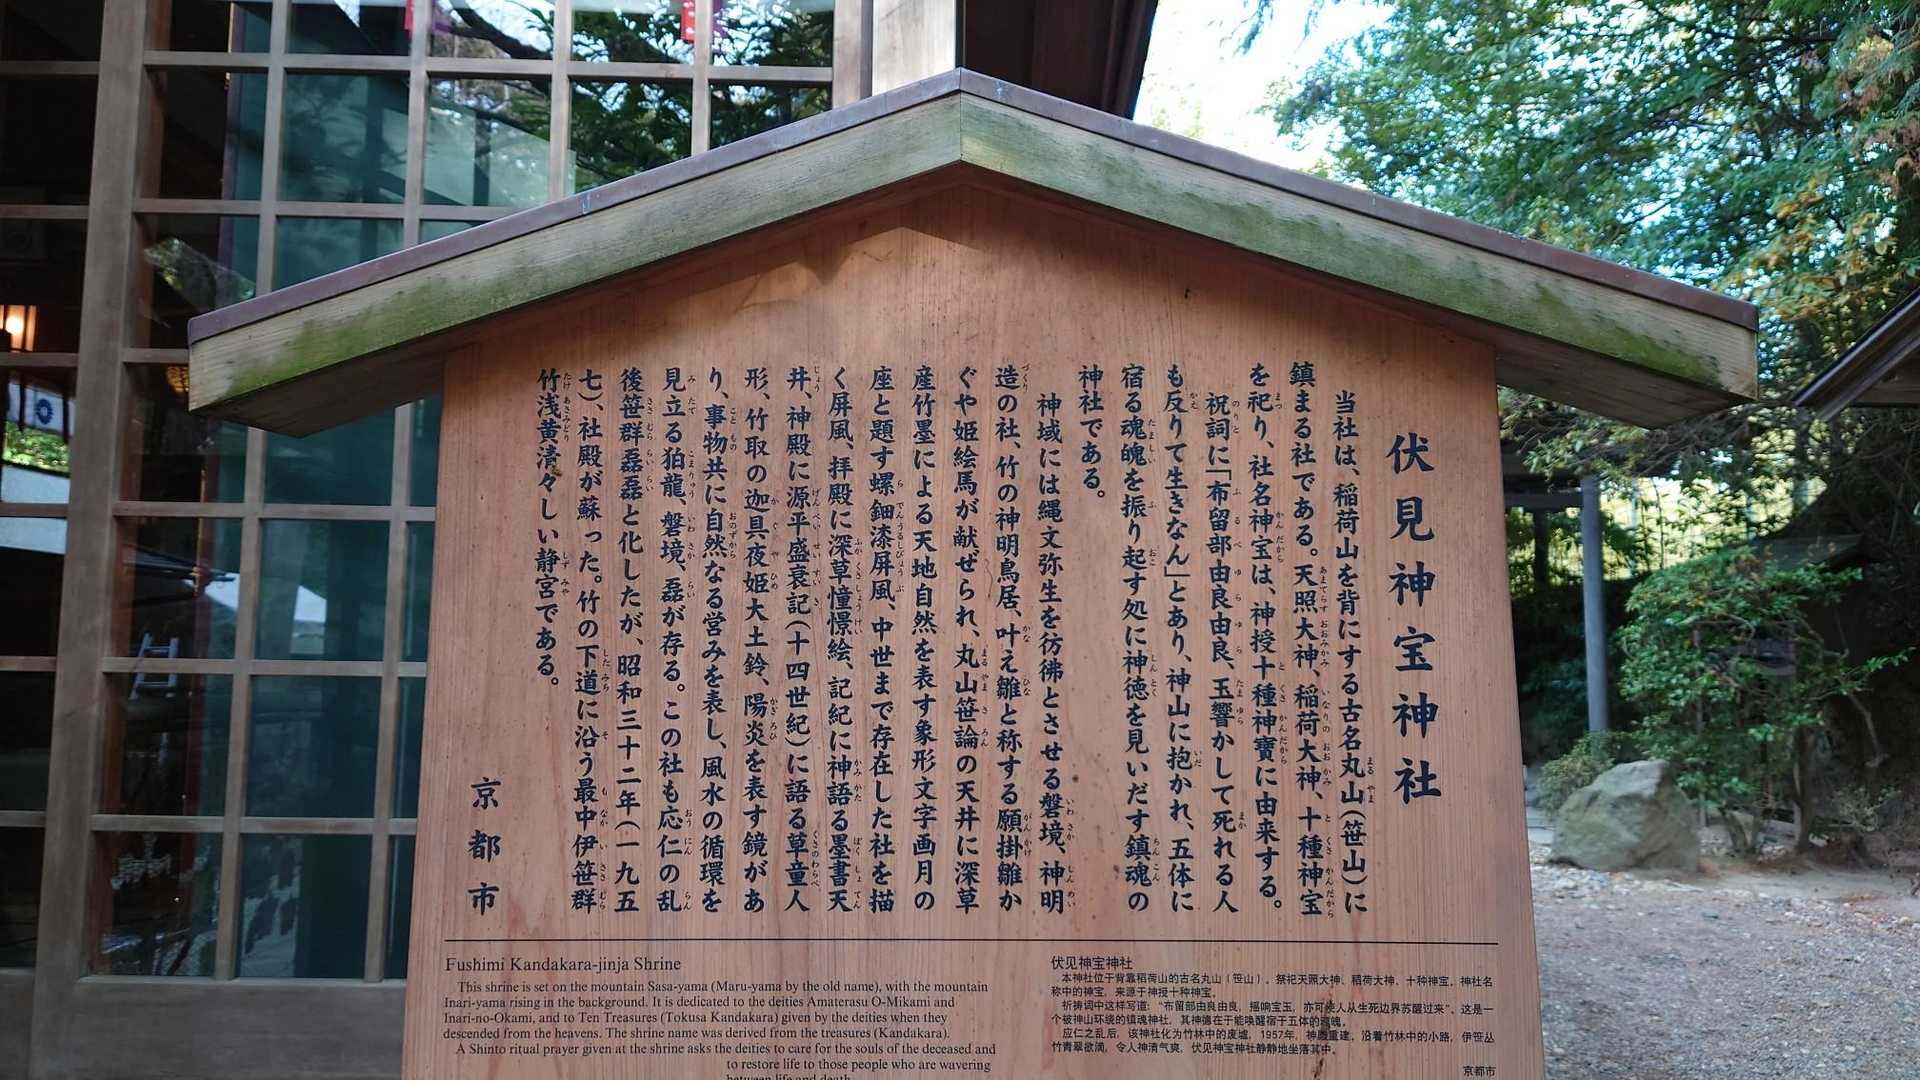 伏見神宝神社
当社は、稲荷山を背にする古名丸山(笹山)に
鎮まる社である。天照大神、稲荷大神、十種神宝
を祀り、社名神宝は、神授十種神寶に由来する。
祝詞に「布留部由良由良、玉響かして死れる人
も反りて生きなん」とあり、神山に抱かれ、五体に
宿る魂魄を振り起す処に神徳を見いだす鎮魂の
神社である。
神域には縄文弥生を彷彿とさせる磐境、神明
造の社、竹の神明鳥居、叶え雛と称する願掛雛か
ぐや姫絵馬が献ぜられ、丸山笹論の天井に深草
産竹墨による天地自然を表す象形文字画月の
座と題す螺鈿漆屏風、中世まで存在した社を描
く屏風、拝殿に深草憧憬絵、記紀に神語る墨書天
井、神殿に源平盛衰記(十四世紀)に語る草童人
形、竹取の迦具夜姫大土鈴、陽炎を表す鏡があ
り、事物共に自然なる営みを表し、風水の循環を
見立る狛龍、磐境、磊が存る。この社も応仁の乱
後笹群磊磊と化したが、昭和三十二年(一九五
七)、社殿が蘇った。竹の下道に沿う最中伊笹群
竹浅黄清々しい静宮である。
京都市
Fushimi Kandakara-jinja Shrine
This shrine is set on the mountain Sasa-yama (Maru-yama by the old name), with the mountain
Inari-yama rising in the background. It is dedicated to the deities Amaterasu O-Mikami and
Inari-no-Okami, and to Ten Treasures (Tokusa Kandakara) given by the deities when they
descended from the heavens. The shrine name was derived from the treasures (Kandakara).
A Shinto ritual prayer given at the shrine asks the deities to care for the souls of the deceased and
to restore life to those people who are wavering
between life and death.
伏见神宝神社
本神社位于背靠稻荷山的古名丸山（笹山）。祭祀天照大神、稻荷大神、十种神宝。神社名
称中的神宝，来源于神授十种神宝。
祈祷词中这样写道：“布留部由良由良，摇响宝玉，亦可使人从生死边界苏醒过来”。这是一
个被神山环绕的镇魂神社，其神德在于能唤醒宿于五体的魂魄。
应仁之乱后，该神社化为竹林中的废墟，1957年，神殿重建。沿着竹林中的小路，伊笹丛
竹青翠欲滴，令人神清气爽，伏见神宝神社静静地坐落其中。
京都市